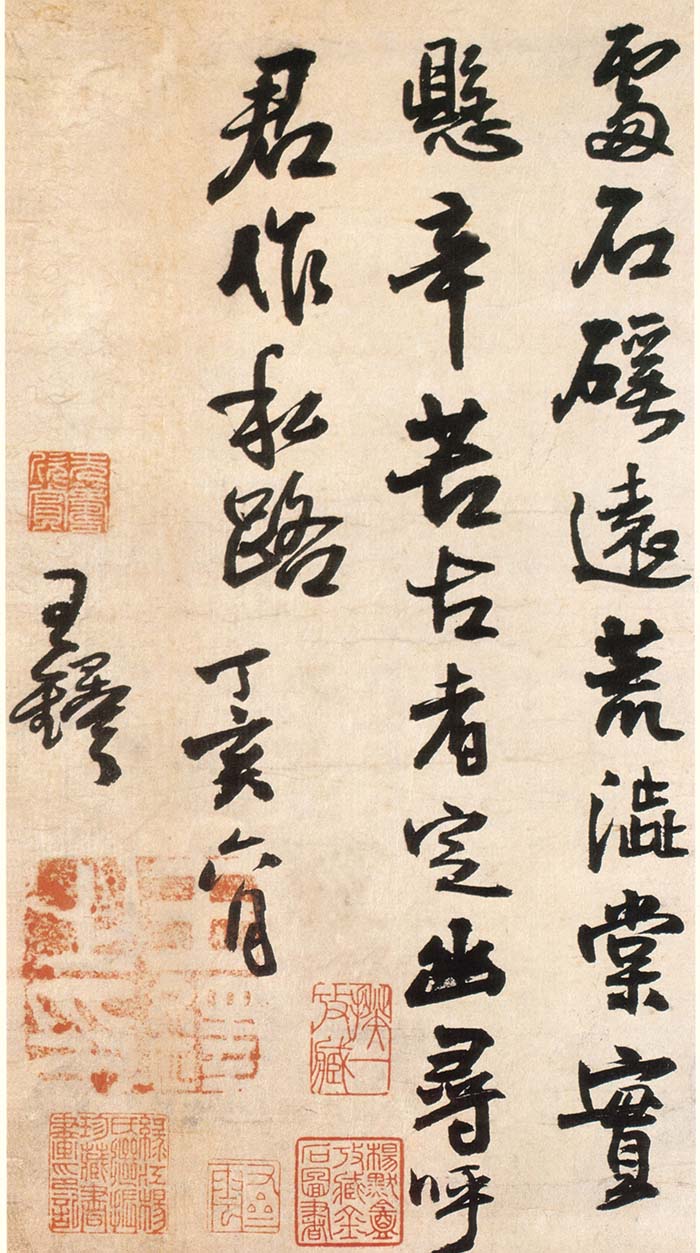 石磎遠荒澁棠實
懸辛苦古者定幽尋呼
君作私路
丁亥六月
王鐸